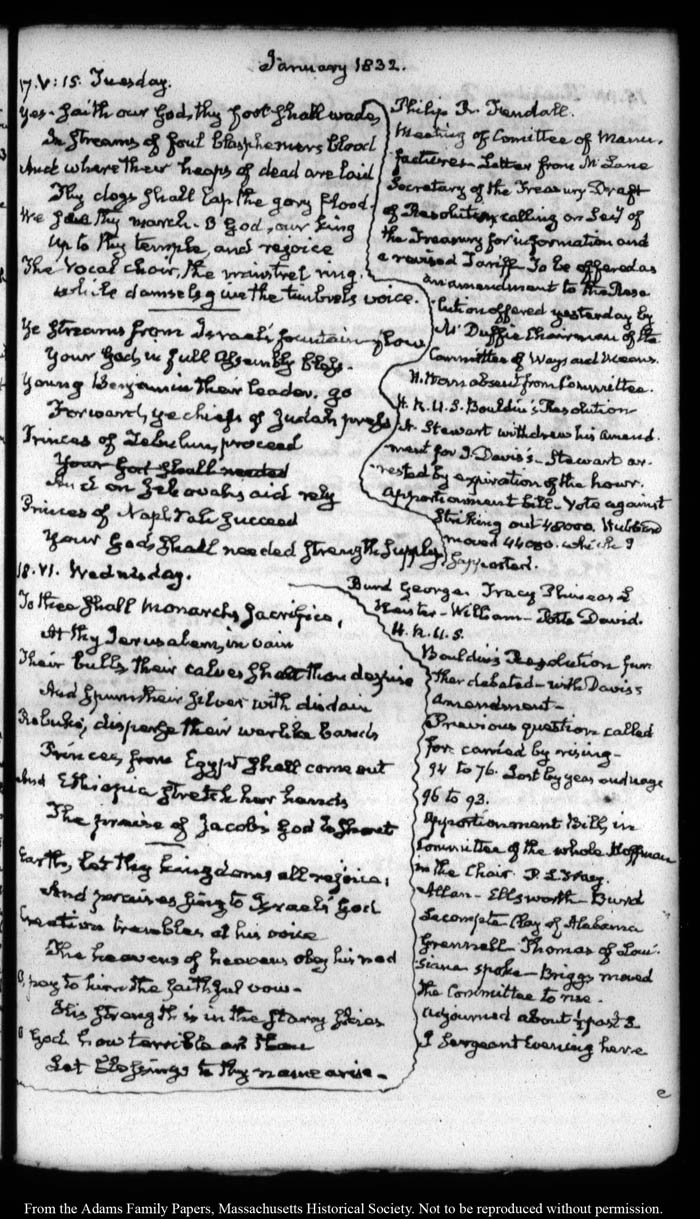 January 1832.
17. V: 15. Tuesday.
Yes. Saith our God, thy foot shall wade,
In streams of foul blasphemers blood
And where their heaps of dead are laid
Thy dogs shall lap the gory flood.
We see thy march. O God, our King
Up to thy temple, and rejoice
The vocal choir, the minstrel ring,
while damsels give the timbrels voice.
Ye streams from Israel's fountain flow
Your God in full Assembly bless.
Young Benjamin their leader, go
Forward, ye chiefs of Judah press
Princes of Zebulun, proceed
Your God shall needed
And on Jehovah's aid rely
Princes of Naphtali succeed
Your God, shall needed strength supply
Philip R. Fendall.
Meeting of Comittee of Manu-
factures- Letter from Mc Lane
Secretary of the Treasury Draft
of Resolution calling on Secy of
the Treasury for information and
a revised Tariff- To be offered as
an amendment to the Reso
lution offered yesterday by
Mc Duffie Chairman of the
Committee of Ways and Means.
absent from Committee.
H. R. U. S. Bouldin's Resolution
Stewart withdrew his Amend-
ment for J. Davis's- Stewart ar-
rested by expiration of the hour.
Apportionment bill- Vote against
striking out 48000. Hubbard
moved 44000. which I
Supported.
18. VI. Wednesday.
To thee shall Monarchs sacrifice,
At thy Jerusalem, in vain
Their bulls their calves shalt thou despise
And spurn their silver with disdain
Rebuke, disperse their warlike bands
Princes, from Egypt shall come out
And Ethiopia stretch her hands
The praise of Jacob's God to shout
Earth, let thy kingdoms all rejoice,
And praises sing to Israel's God
Creation trembles at his voice
The heavens of heavens obey his nod
O, pay to him the faithful vow-
His strength is in the starry skies
O God how terrible art thou
Let blessings to thy name arise-
Burd George. Tracy Phineas L
Heister- William- Potts David.
H. R. U. S.
Bouldin's Resolution fur
ther debated- with Davis's
Amendment-
Previous question called
for. carried by rising-
94 to 76. Lost by yeas and nays
96 to 93.
Apportionment Bill, in
Committee of the whole Hoffman
in the Chair. P. L. Tracy.
Allan- Ellsworth- Burd
Lecompte- Clay of Alabama
Grennell- Thomas of Loui-
siana spoke- Briggs moved
the Committee to rise-
Adjourned about ½ past 3
J Sergeant Evening here
From the Adams Family Papers, Massachusetts Historical Society. Not to be reproduced without permission.